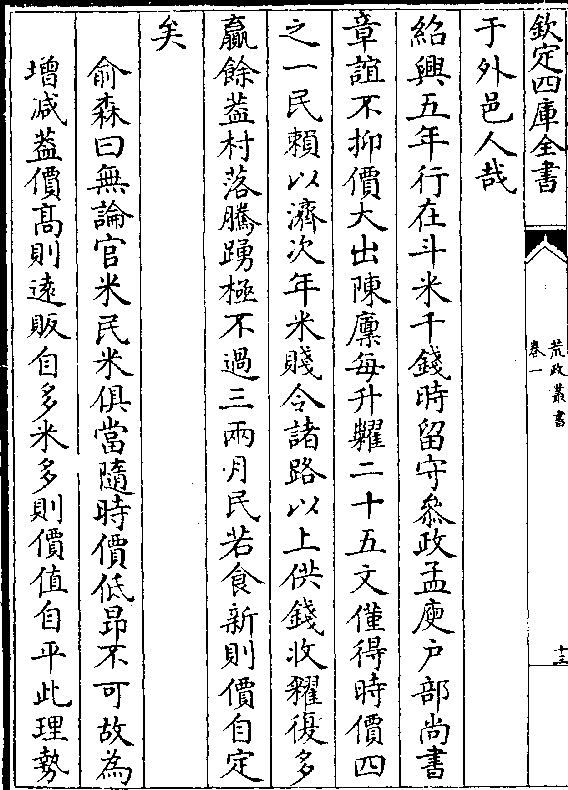 欽定四庫全書
荒政叢書
卷一
十三
于外邑人哉
紹興五年行在斗米千錢時留守叅政孟庾户部尚書
章誼不抑價大出陳廪每升糶二十五文僅得時價四
之一民賴以濟次年米賤令諸路以上供錢收糴復多
贏餘葢村落騰踴極不過三兩月民若食新則價自定
矣
俞森曰無論官米民米俱當隨時價低昂不可故為
增减葢價高則遠販自多米多則價值自平此理勢